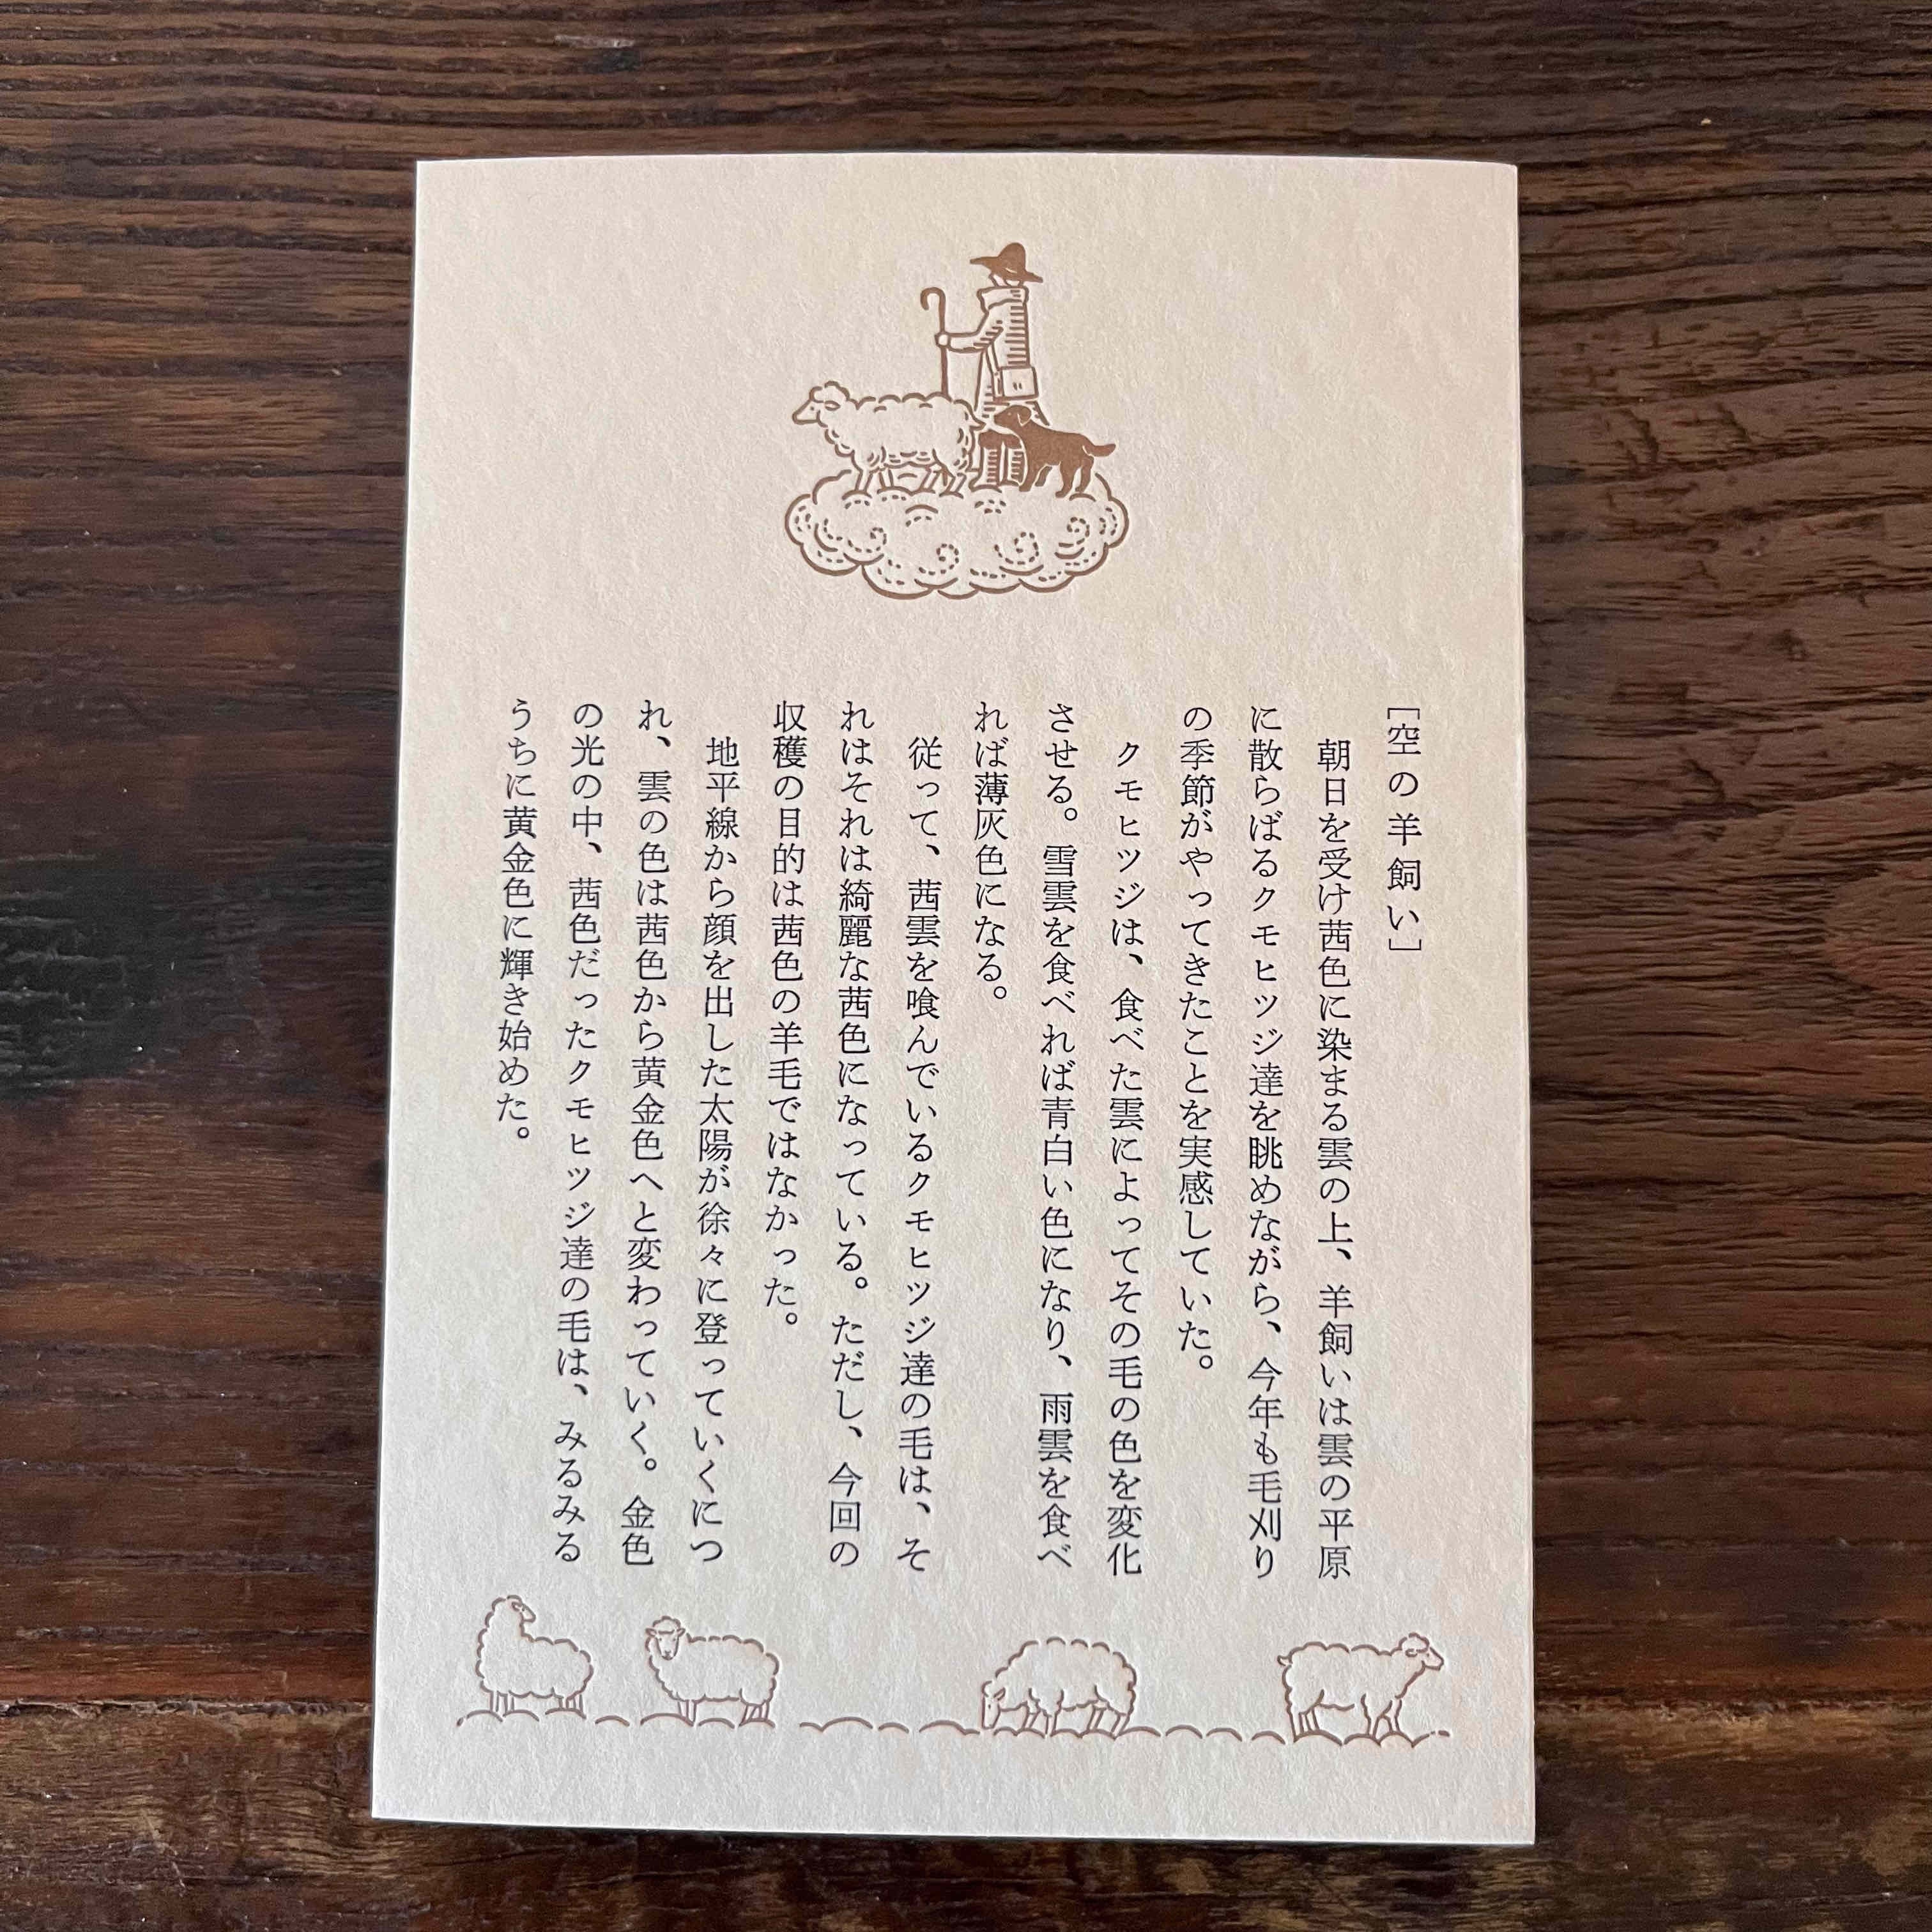 ［空の羊飼い］
　朝日を受け茜色に染まる雲の上、羊飼いは雲の平原
に散らばるクモヒツジ達を眺めながら、今年も毛刈り
の季節がやってきたことを実感していた。
　クモヒツジは、食べた雲によってその毛の色を変化
させる。雪雲を食べれば青白い色になり、雨雲を食べ
れば薄灰色になる。
　従って、茜雲を喰んでいるクモヒツジ達の毛は、そ
れはそれは綺麗な茜色になっている。ただし、今回の
収穫の目的は茜色の羊毛ではなかった。
　地平線から顔を出した太陽が徐々に登っていくにつ
れ、雲の色は茜色から黄金色へと変わっていく。金色
の光の中、茜色だったクモヒツジ達の毛は、みるみる
うちに黄金色に輝き始めた。